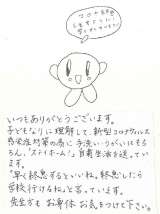 コロナ終息
しますように!
いつもありがとうございます。
子どもなりに理解して、新型コロナウィルス
感染症対策の為に手洗い・うがいはもち
ろん、"ステイホーム"、自粛生活を送って
います。
"早く終息するといいね。終息したら
学校行けるね。"と言っています。
先生方も お身体 お気をつけて下さい。